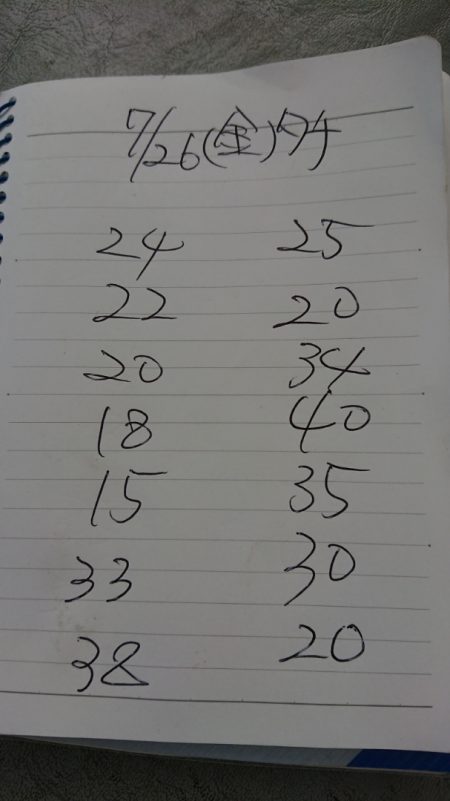 7/26(金)夕チ
24 25
22 20
20 34
18 40
15 35
33 30
38 20